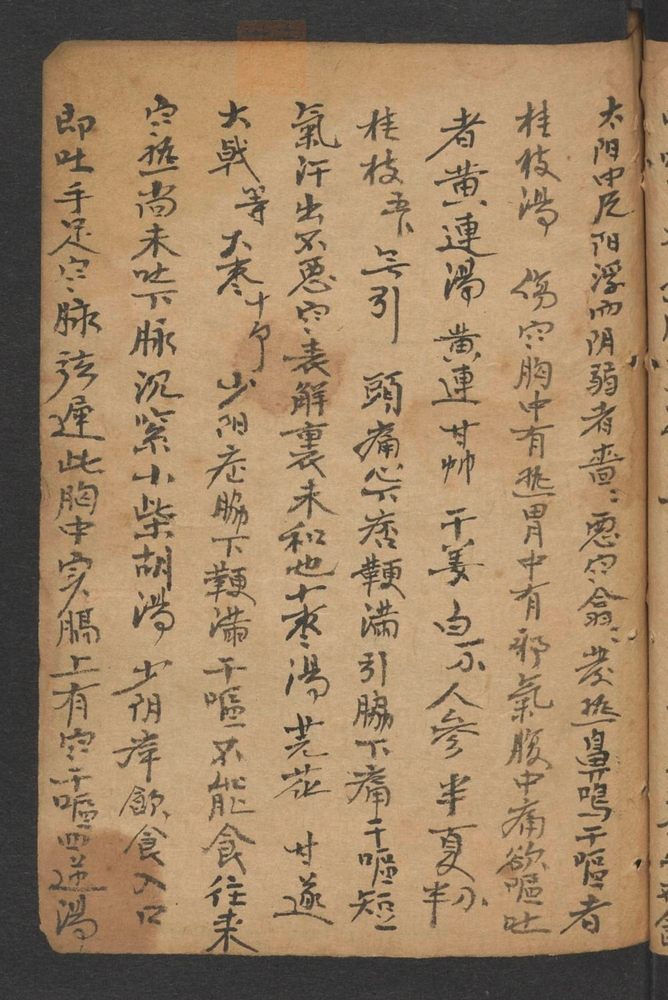 太阳中风阳浮而阴弱者嗇〻恶寒翕〻发热鼻鳴干嘔者
桂枝湯　傷寒胸中有热胃中有邪氣腹中痛欲嘔吐
者黄連湯　黄連　甘艸　干姜　白　人參　半夏
桂枝　引　頭痛心下痞鞕满引脇下痛干嘔短
氣汗出不恶寒表解裏未和也十枣湯　芫花　甘遂
大戟　等　大枣十　少阳症脇下鞕满干嘔不能食往来
寒热尚未吐下脉沉紧小柴胡湯　少阴症飲食入口
即吐手足寒脉弦遲此胸中实膈上有寒干嘔四逆湯